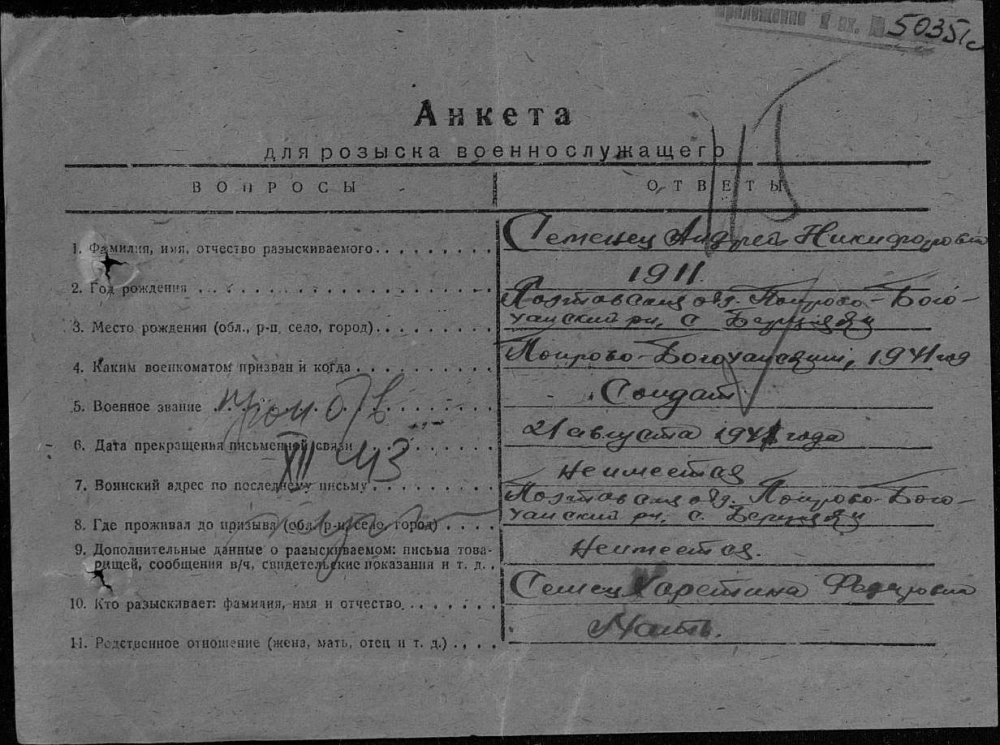 Приложение к вх. № 50351с
Анкета
для розыска военнослужащего
ВОПРОСЫ ОТВЕТЫ
1. Фамилия, имя, отчество разыскиваемого Семенец Андрей Никифорович
2. Год рождения 1911.
3. Место рождения (обл., р-п, село, город) Полтавская обл. Покрово-Бого-
чанский рн, с.
4. Каким военкоматом призван и когда Покрово-Богочанский, 1941 год
5. Военное звание Солдат
проп б/в
6. Дата прекращения письменной связи 21 августа 1941 года
XII-43
7. Воянский адрес по последнему письму Неимеется
8. Где проживал до призыва (обл. р-н, село, город) Полтавская обл. Покрово-Бого-
чанский рн, с.
9. Дополнительные данные о разыскиваемом: письма това-
рищей, сообщения в/ч, свидетельские показания и т. д. Неимеется.
10. Кто разыскивает: фамилия, имя и отчество Семец Харетина
11. Родственное отношение (жена, мать, отец и т. д.) Мать.